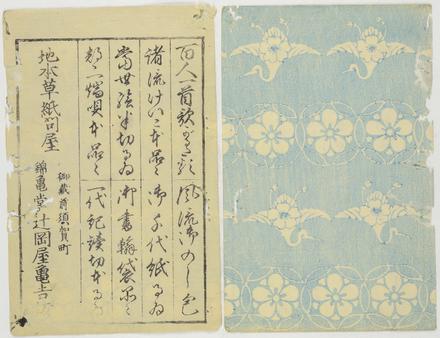 百人一首歌かるた 風流御のし包
諸流けいこ本品々 御千代紙るゐ
当世絵半切るゐ 御書翰袋品々
一代記読切本るゐ
地本草紙問屋
御蔵前須賀町
錦亀堂 辻岡屋亀吉